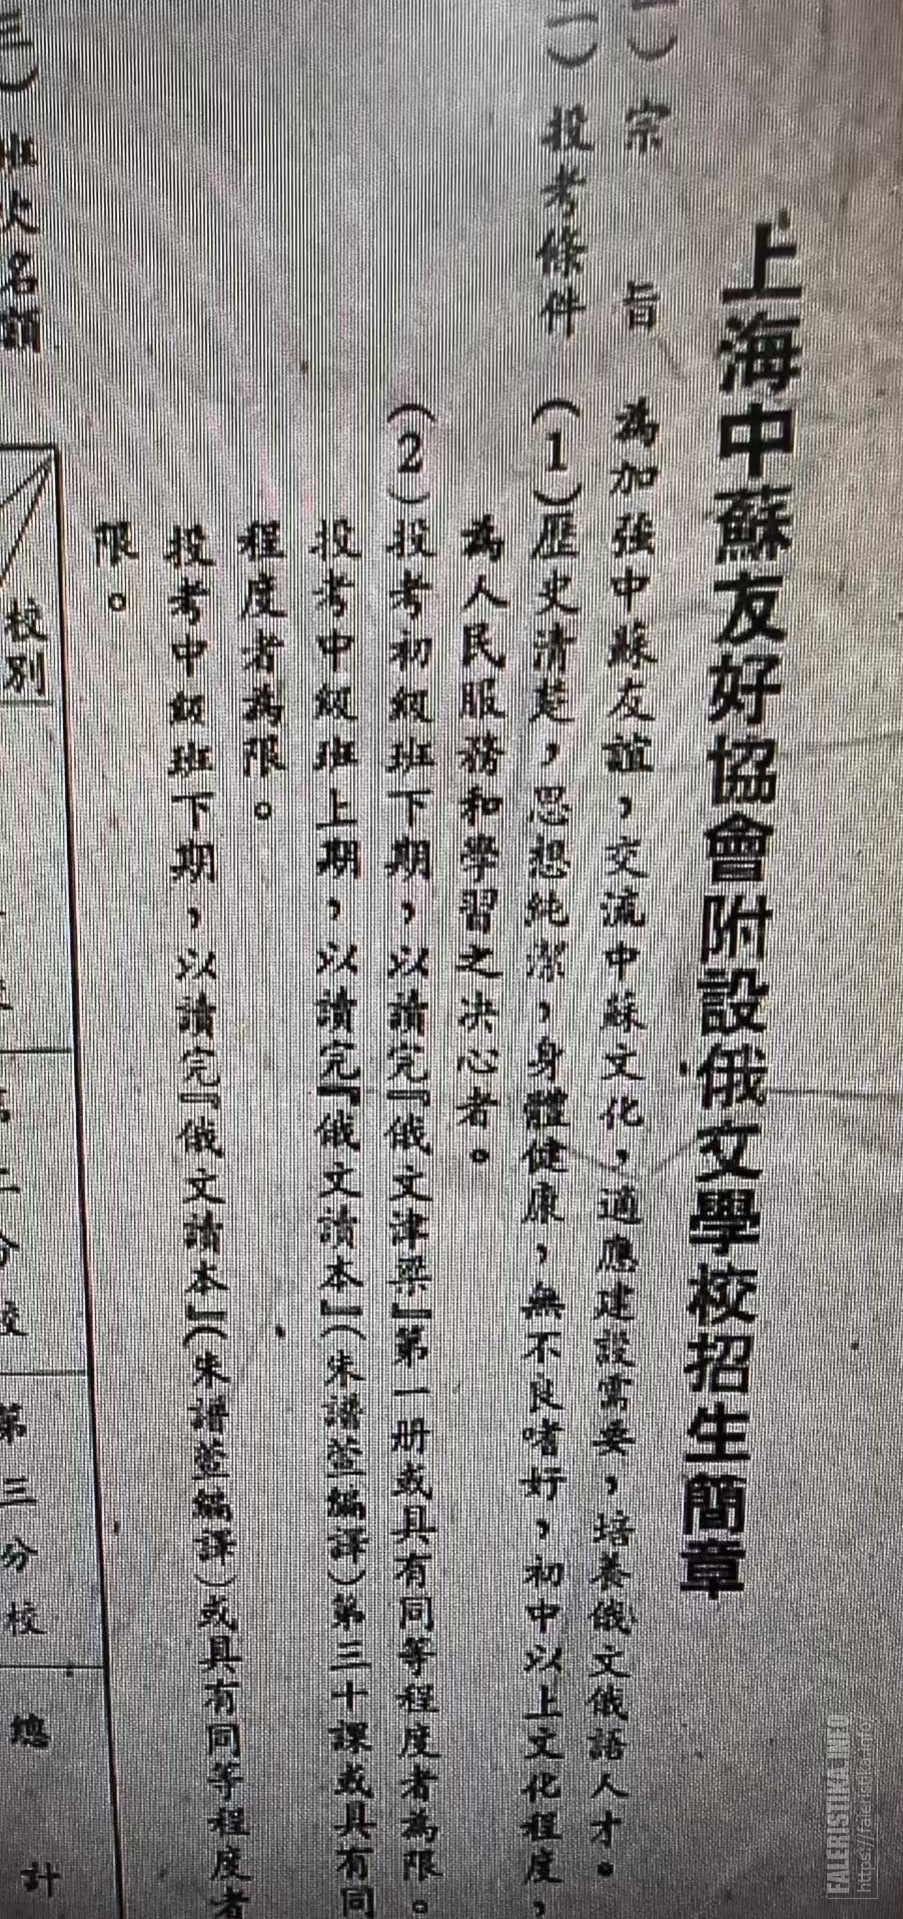 上海中蘇友好協會附設俄文學校招生簡章
(一) 宗旨 為加強中蘇友誼,交流中蘇文化,適應建設需要,培養俄文俄語人才。
(二) 投考條件 (1)歷史清楚,思想純潔,身體健康,無不良嗜好,初中以上文化程度,
為人民服務和學習之決心者。
(2)投考初級班下期,以讀完『俄文津梁』第一册或具有同等程度者為限。
投考中級班上期,以讀完『俄文讀本』(朱譜萱編譯)第三十課或具有同
程度者為限。
投考中級班下期,以讀完『俄文讀本』(朱譜萱編譯)或具有同等程度者
限。
三) 班次名額
校別
二分校
第三分校
總計
FALERISTIKA.INFO
https://faleristika.info/